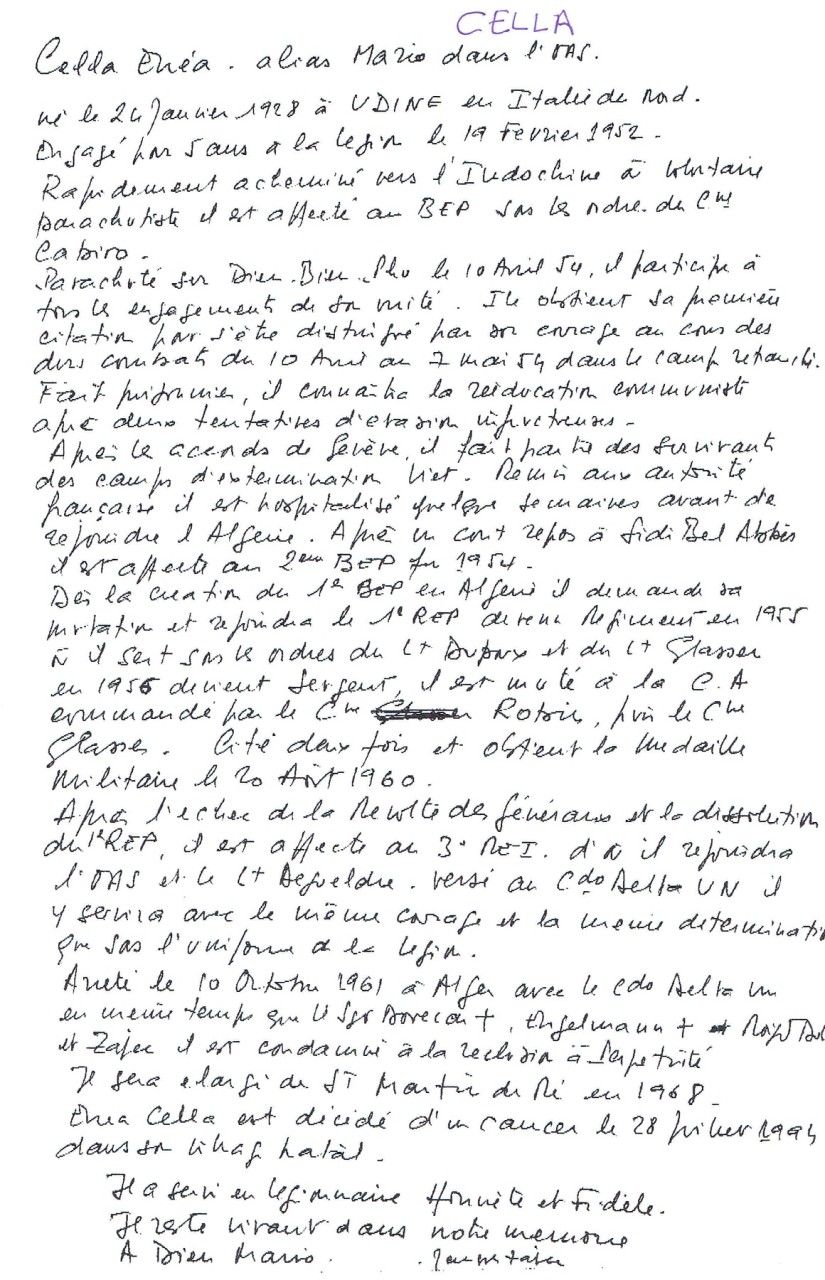 CELLA
Cella Enéa. alias Mario dans l'OAS.
né le 24 Janvier 1928 à UDINE en Italie du Nord.
Engagé pour 5 ans à la légion le 19 Février 1952.
Rapidement acheminé vers l'Indochine à volontaire
parachutiste il est affecté au BEP sous les ordre du Cne
Cabiro.
Parachuté sur Dien. Bien. Phu le 10 Avril 54, il participe à
tous le engagements de son unité. Il obtient sa première
citation pour s'être distingué par son courage au cours des
durs combats du 10 Avril au 7 mai 54 dans le camp retranché.
Fait prisonnier, il connaitra la rééducation communiste
après deux tentatives d'évasion infructueuses.
Après le accords de Genève, il fait partie des survivants
des camps d'extermination Viet. Remis aux autorité
française il est hospitalisé quelque semaines avant de
rejoindre l'Algérie. Après un court repos à Sidi Bel Abbès
il est affecté au 2ème BEP fin 1954.
Dès la création du 1e BEP en Algérie il demande sa
mutation et rejoindra le 1e REP devenu Régiment en 1955
où il sert sous les ordres du Lt Dupoux et du Lt Glasser
en 1956 devient Sergent, il est muté à la C.A
commandé par le Cne Rotoin, puis le Cne
Glasser. Cité deux fois et obtient la Médaille
Militaire le 20 Août 1960.
Après l'echec de la Révolte des Généraux et la dissolution
du 1e REP, il est affecté au 3e REI. d'où il rejoindra
l'OAS et le Lt Degueldre. versé au Cdo Delta UN il
y servira avec le même courage et la même determination
que sous l'uniforme de la Légion.
Arreté le 10 Octobre 1961 à Alger avec le cdo Delta un
en meme temps que le Sgt Dovecar +, Engelmann +
et Zajec il est condamné à la reclusion à Perpetuité
Il sera elargi de ST Martin de Ré en 1968.
Enea Cella est décidé d'un cancer le 28 Juillet 1994
dans son village natal.
Il a servi en légionnaire Honnête et Fidèle.
Il reste vivant dans notre memoire
A Dieu Mario.